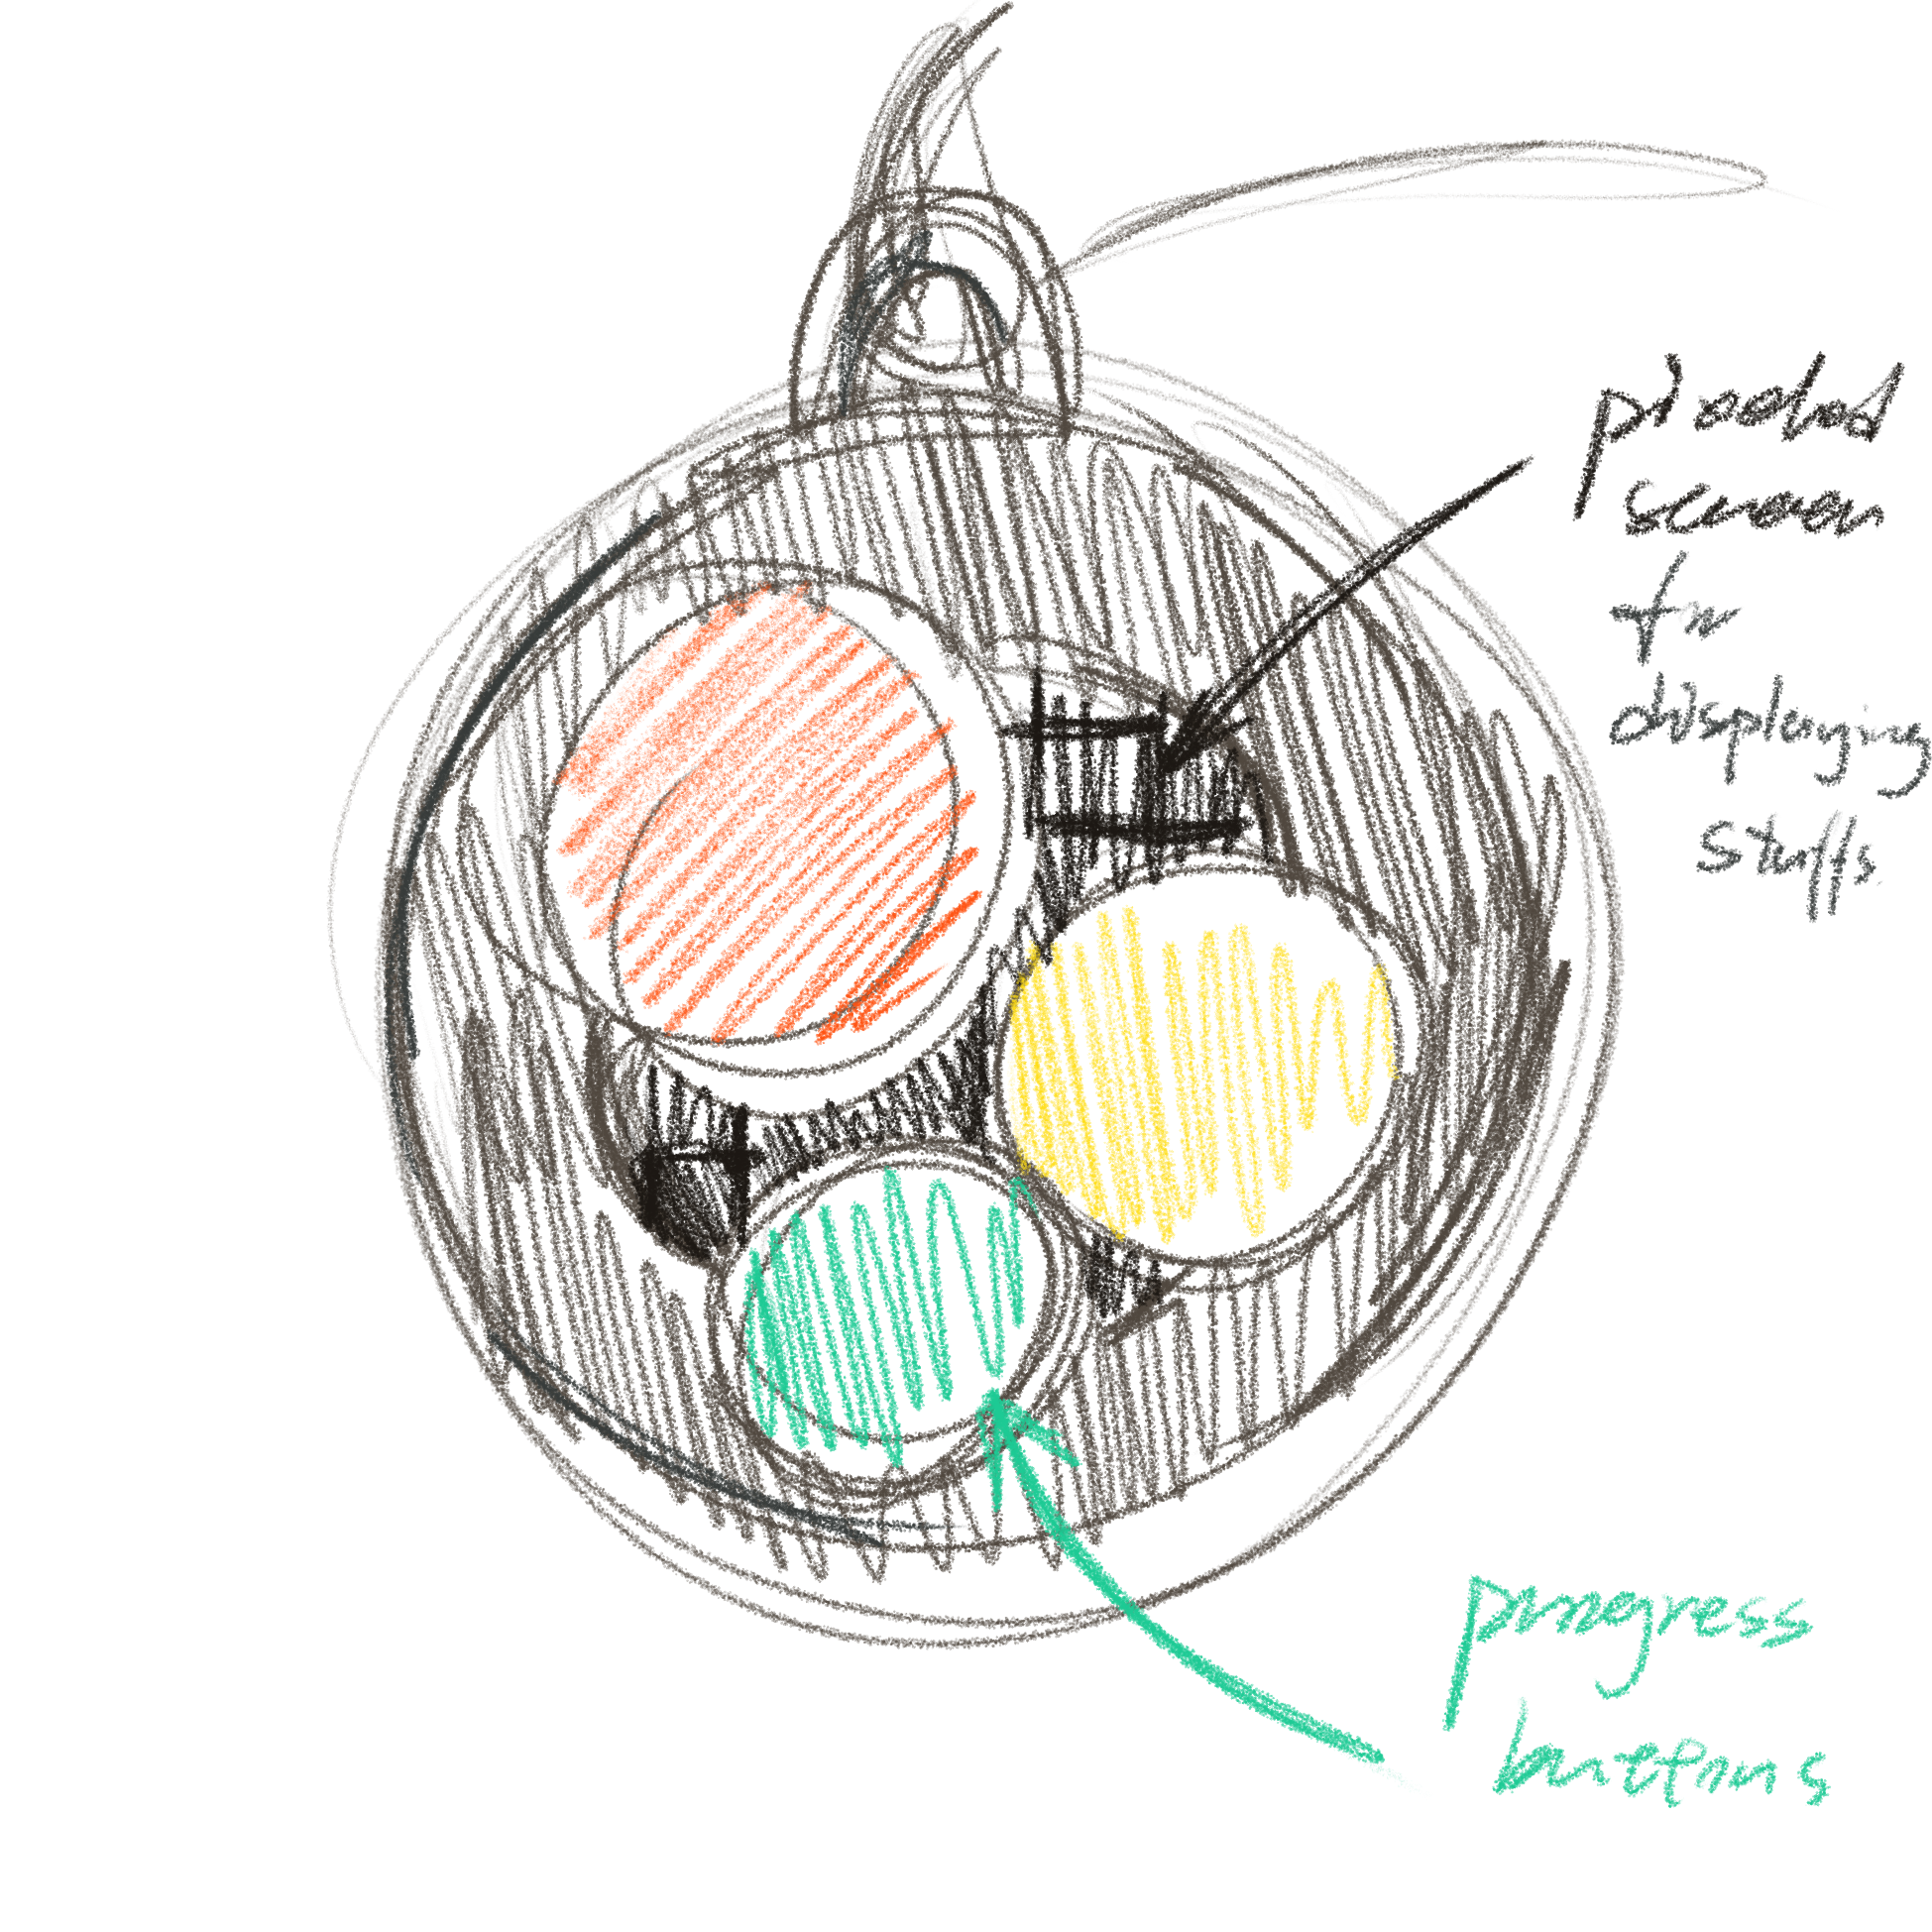 screen
for
displaying
stuffs
progress
buttons